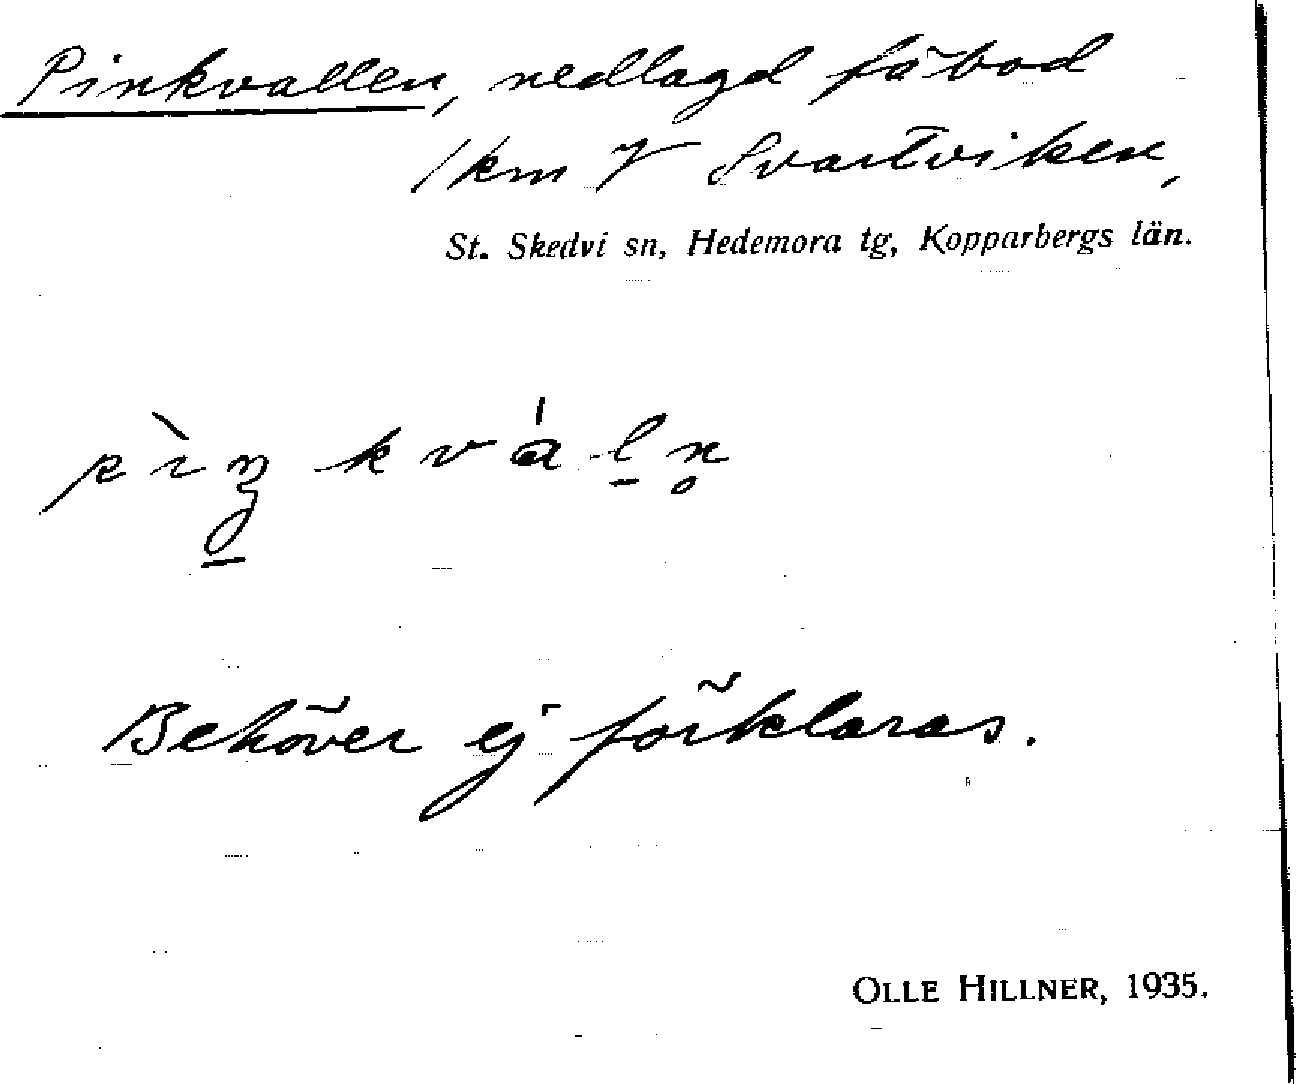 Pinkvallen, nedlagd fäbod
1 km V Svartviken,
St. Skedvi sn, Hedemora tg, Kopparbergs län.
pìŋkvál̠n̥
Behöver ej förklaras.
OLLE HILLNER, 1935.